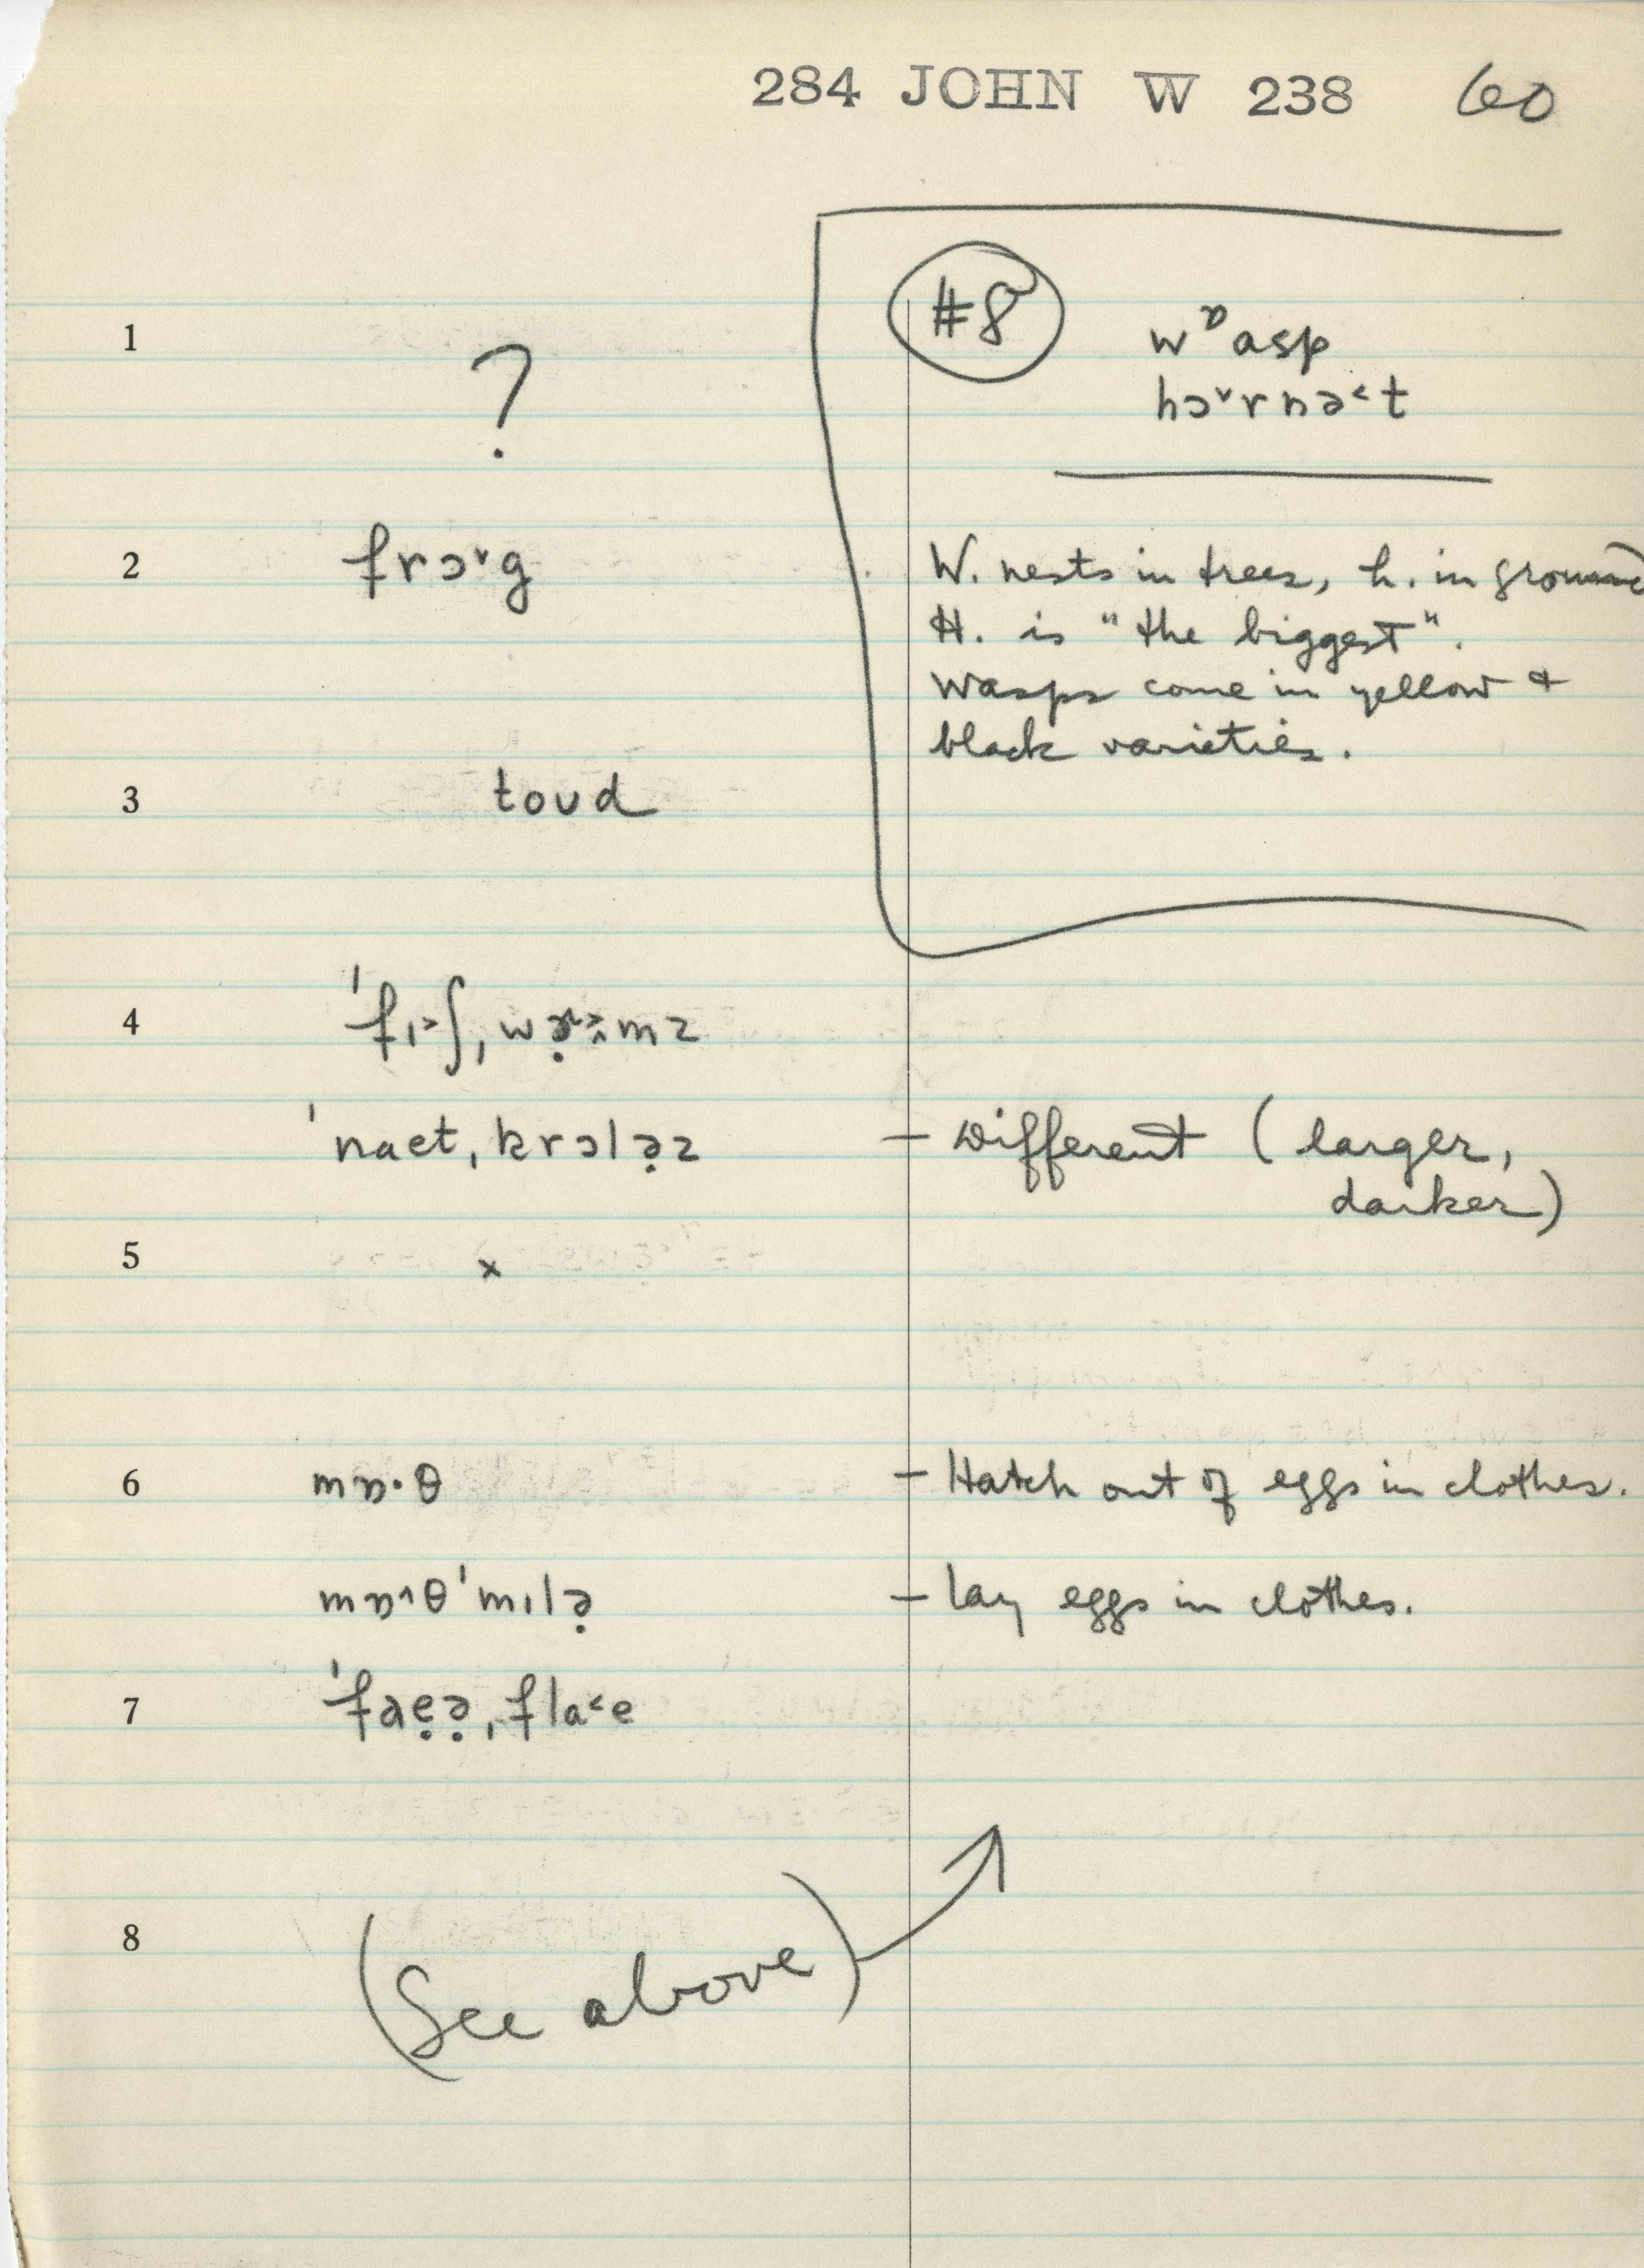 284 JOHN W 238 60
#8
wᶛasp
hɔˇrnə˂t
W. nests in trees, h. in ground
H. is "the biggest".
Wasps come in yellow +
black varieties.
1 ?
2 frɔˇg
3 toʊd
4
ˈnaet ˌkrɔlə̣z – Different (larger,
darker)
5 x
6 mɒ·θ – Hatch out of eggs in clothes.
mɒ^θˈmɪlə̣ – lay eggs in clothes.
7 ˈfaẹə̣ ˌfla˂e
8 (See above)